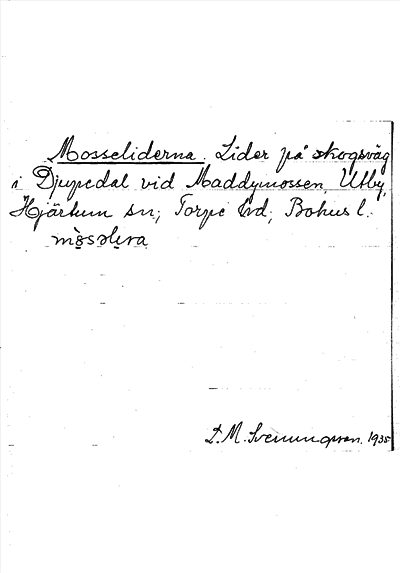 Mosseliderna. Lider på skogsväg
i Djupedal vid Maddymossen, Utby,
Hjärtum sn; Torpe hd; Bohusl.
mòsəlı̣ra
L. M. Svenungsson. 1935